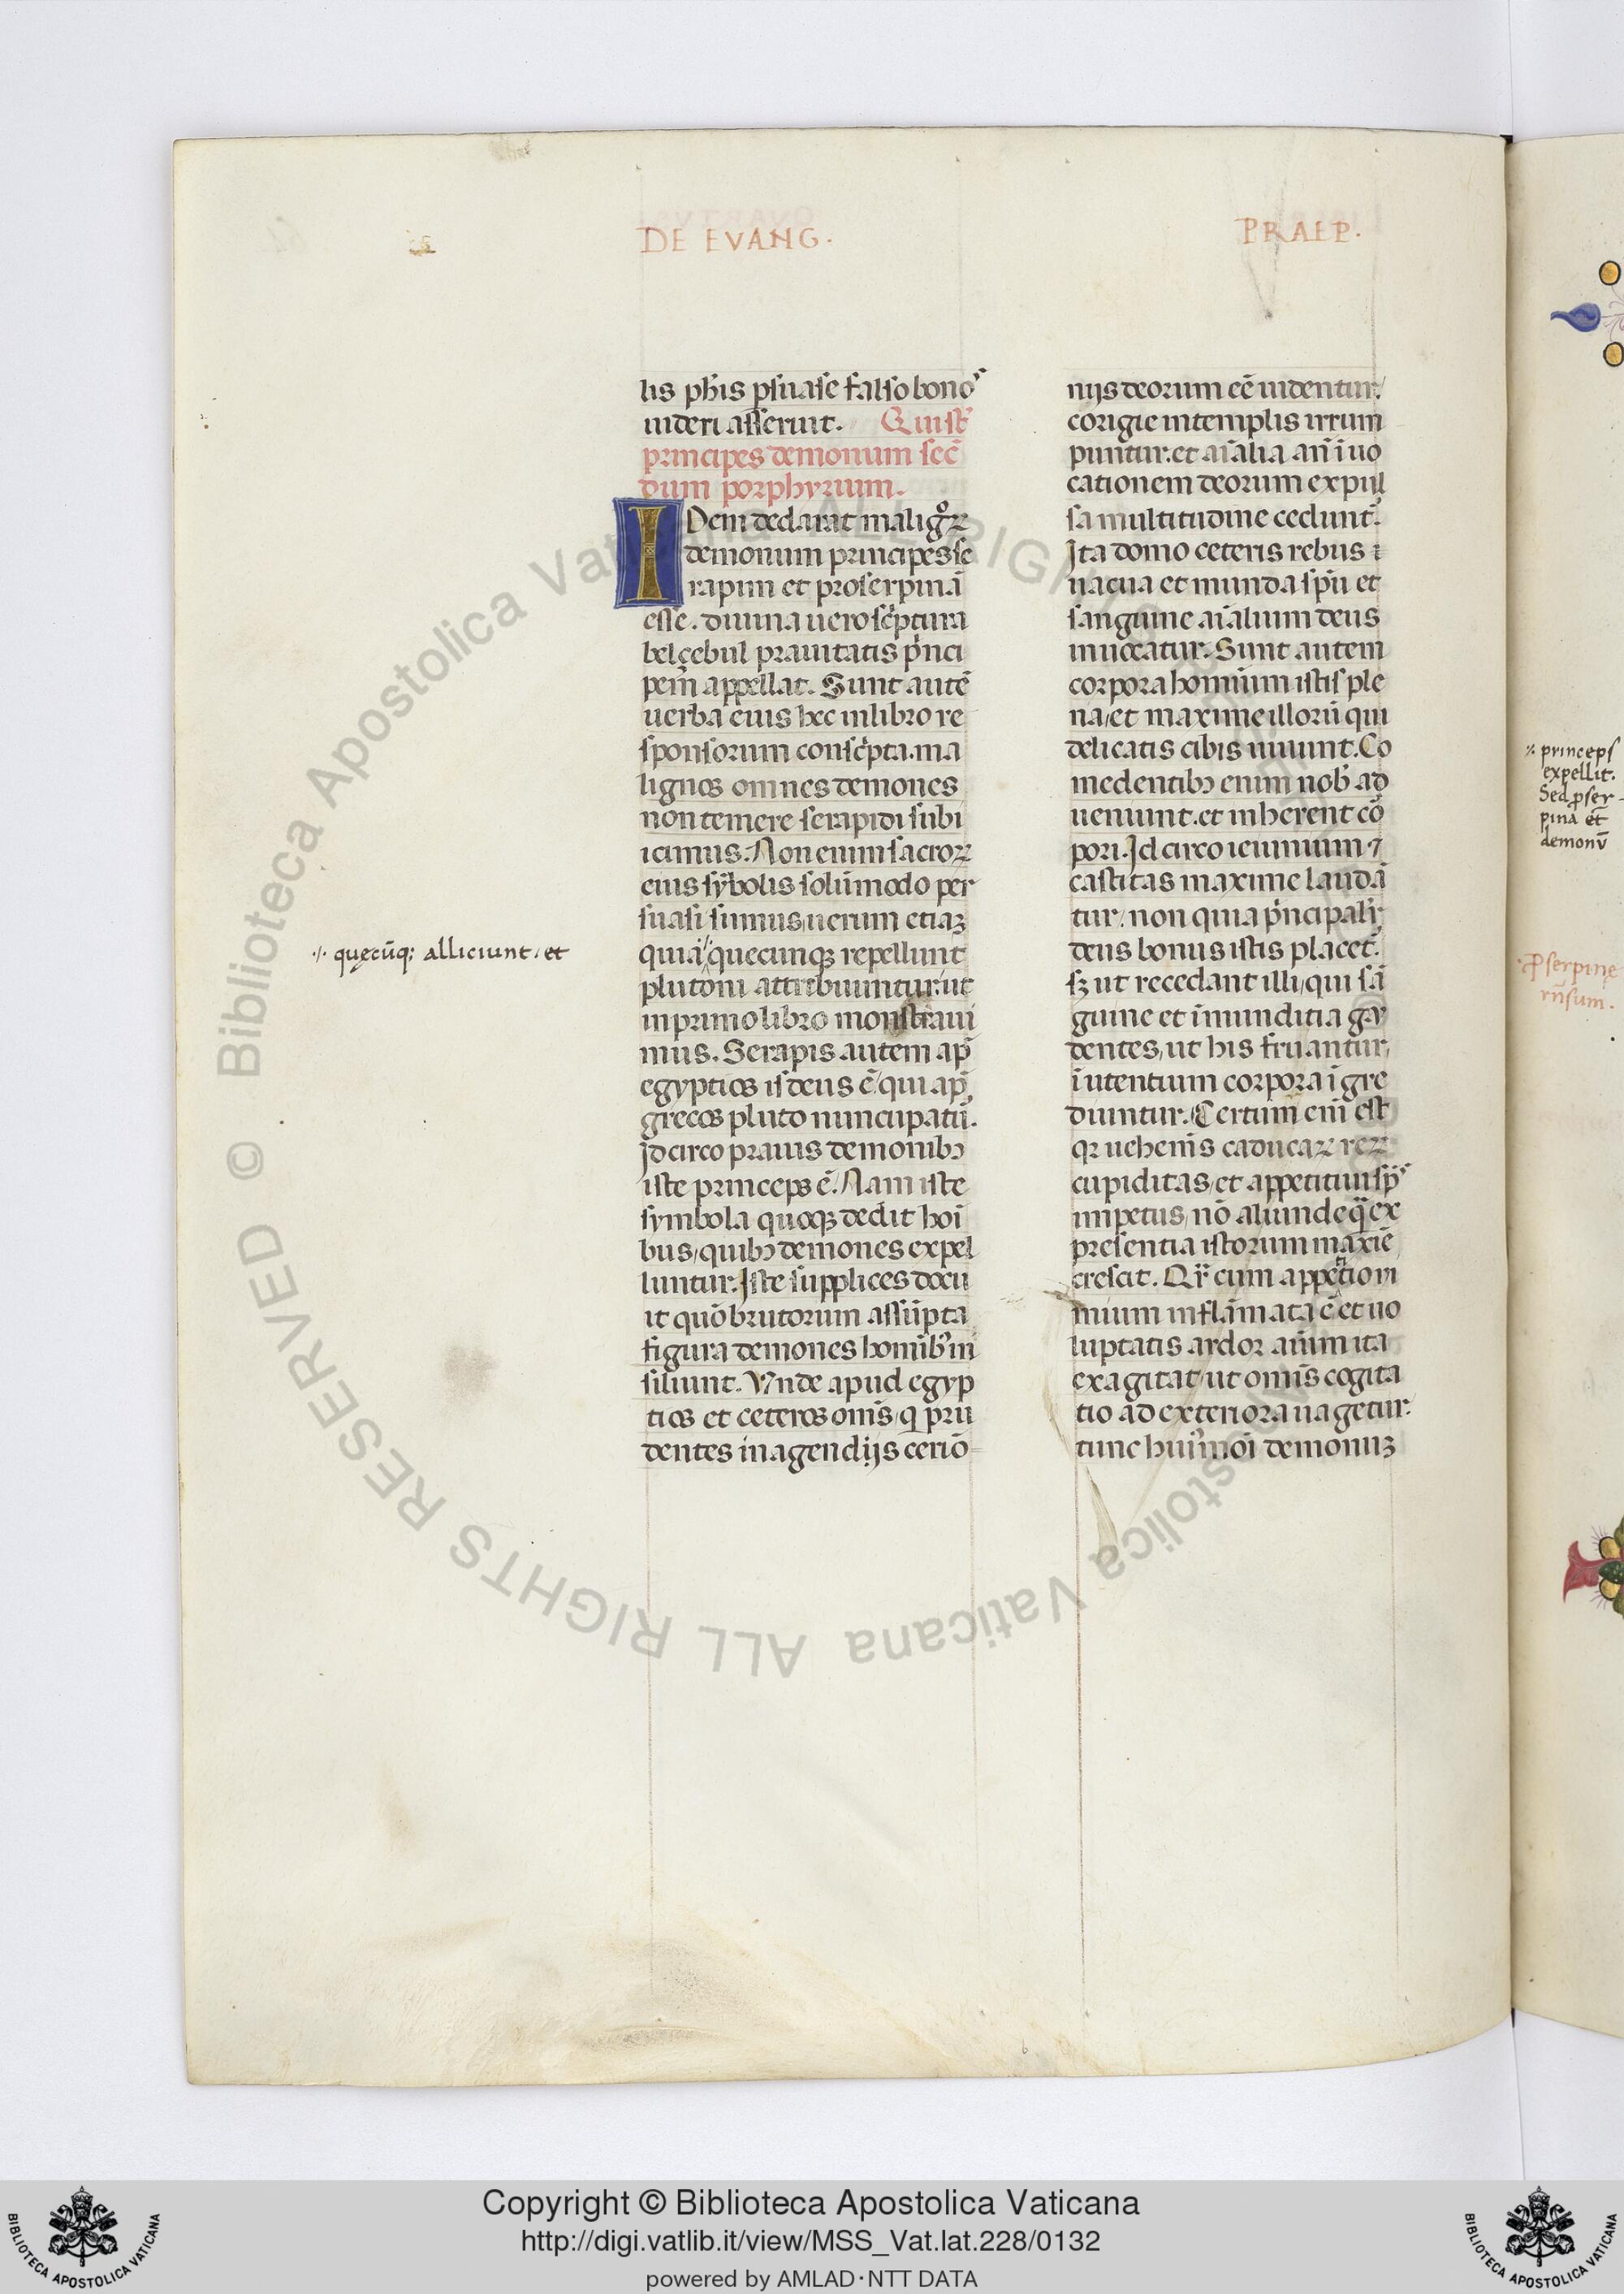 DE EVANG.
PRAEP.
lis ph̄is p̄suase falso bonos
uideri asserunt. Qui st̄
principes demonum secū
dum porphyrium.
IDem declarat malignoꝝ
demonum principes se
rapim et proserpinā
esse. diuina uero sc͛ptura
belcebul prauitatis p͛nci
pem appellat. Sunt autē
uerba eius hec in libro re
sponsorum consc͛pta. ma
lignos omnes demones
non temere serapidi subi
icimus. Non enim sacroꝝ
eius sȳbolis solūmodo per
suasi sumus, uerum etiaꝫ
quia quecunqꝫ repellunt
plutoni attribuuntur. ut
in primo libro monstraui
mus. Serapis autem ap̄
egyptios is deus ē qui ap̄
grecos pluto nuncupatur̄.
Jdcirco prauis demonibꝰ
iste princeps ē. Nam iste
symbola quoqꝫ dedit hoī
bus, quibꝰ demones expel
luntur. Jste supplices docu
it quō brutorum assūpta
figura demones hominibꝰ in
siliunt. Vnde apud egyp
tios et ceteros om̄s, q̄ pru
dentes in agendijs cerio
·/· quęcūq; alliciunt. et
nijs deorum eē uidentur/
corigie in templis irrum
puntur. et aīalia an̄ īuo
cationem deorum expul
sa multitudine cedunt̄.
Jta domo ceteris rebus ⁊
uacua et munda spū et
sanguine aīalium deus
inuocatur. Sunt autem
corpora hominum istis ple
na/ et maxime illorū qui
delicatis cibis uiuunt. Co
medentibꝰ enim nobꝭ ad
ueniunt. et inherent cō
pori. Jdcirco ieiunium ⁊
castitas maxime laudā
tur/ non quia p͛ncipalr̄
deus bonus istis placet.
sꝫ ut recedant illi, qui sā
guine et īmunditia gau
dentes, ut his fruantur,
ī utentium corpora īgre
diuntur. Certum eni est
qꝛ uehem̄s caducaꝝ reꝝ
cupiditas, et appetituū ips
impetus, nō aliunde q̄ ex
presentia istorum maxīe
crescit. Qr̄ cum appetitio ni
mium inflāmata ē et uo
luptatis ardor aīum ita
exagitat, ut om̄is cogita
tio ad exteriora uagetur.
tunc huiꝰmoi demonuꝫ
·/· princeps
expellit.
Sed p̄ser-
pina et̄
demonū
p̄serpinę
rn̄sum.
Copyright © Biblioteca Apostolica Vaticana
http://digi.vatlib.it/view/MSS_Vat.lat.228/0132
powered by AMLAD·NTT DATA
BIBLIOTECA APOSTOLICA VATICANA
BIBLIOTECA APOSTOLICA VATICANA
© Biblioteca Apostolica Vaticana ALL RIGHTS RESERVED
© Biblioteca Apostolica Vaticana ALL RIGHTS RESERVED